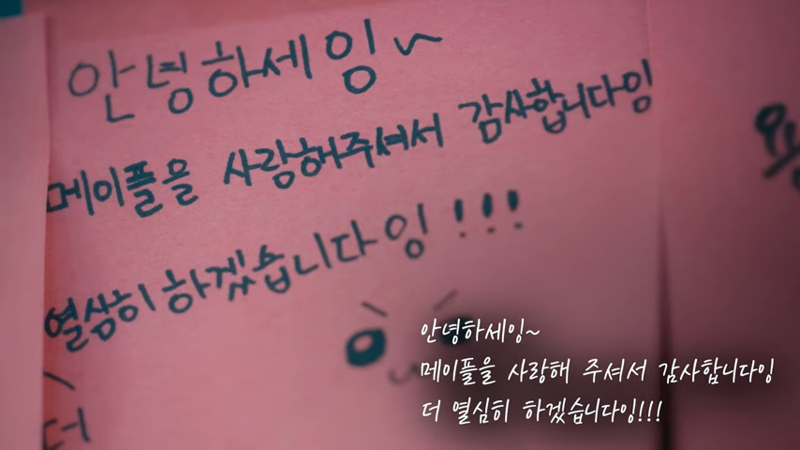 안녕하세잉~
메이플을 사랑해주셔서 감사합니다잉
열심히 하겠습니다잉!!!
더
안녕하세잉~
메이플을 사랑해 주셔서 감사합니다잉
더 열심히 하겠습니다잉!!!